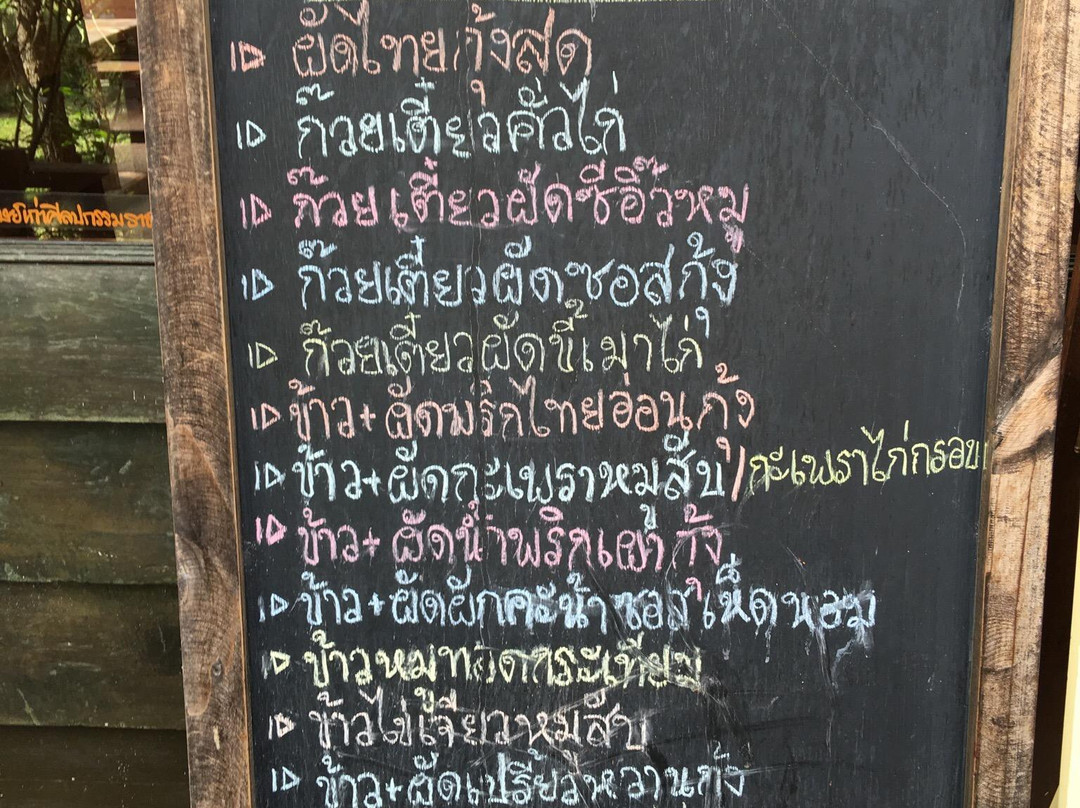 ผัดไทยกุ้งสด
ก๊วยเตี๋ยวคั่วไก่
ก๊วยเตี๋ยวผัดซีอิ๊วหมู
ก๊วยเตี๋ยวผัดซอสกุ้ง
ก๊วยเตี๋ยวผัดขี้เมาไก่
ข้าว+ผัดพริกไทยอ่อนกุ้ง
ข้าว+ผัดกะเพราหมูสับ/กะเพราไก่กรอบ
ข้าว+ผัดน้ำพริกเผากุ้ง
ข้าว+ผัดผักคะน้าซอสเห็ดหอม
ข้าวหมูทอดกระเทียม
ข้าวไข่เจียวหมูสับ
ข้าว+ผัดเปรี้ยวหวานกุ้ง